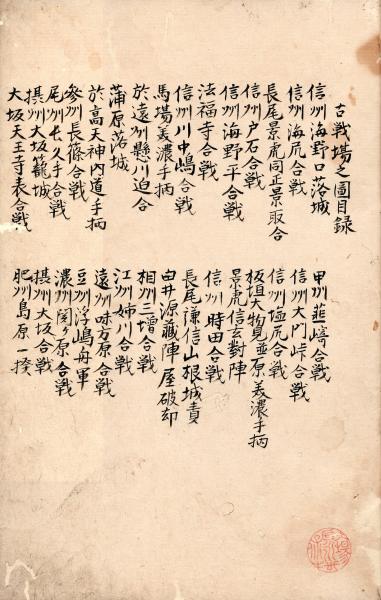 古戦場之圖目録
信州海野口落城
信州海尻合戦
長尾景虎同正景取合
信州戸石合戦
信州海野平合戦
法福寺合戦
信州川中嶋合戦
馬場美濃手柄
於遠州懸川迫合
蒲原落城
於高天神内道手柄
参州長篠合戦
尾州長久手合戦
摂州大坂籠城
大坂天王寺表合戦
甲州韮崎合戦
信州大門峠合戦
信州塩尻合戦
板垣大物見並原美濃手柄
景虎信玄對陣
信州時田合戦
長尾謙信山根城責
臼井源藏陣屋破却
相州三増合戦
江州姉川合戦
遠州味方原合戦
豆州浮嶋舟軍
濃州関ヶ原合戦
摂州大坂合戦
肥州島原一揆